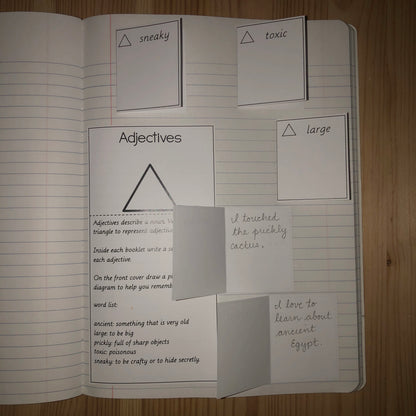 sneaky
toxic
large
Adjectives
Adjectives describe a noun.
triangle to represent adjectives
Inside each booklet write a
each adjective.
On the front cover draw a
diagram to help you remember
word list:
ancient: something that is very old
large: to be big
prickly: full of sharp objects
toxic: poisonous
sneaky: to be crafty or to hide secretly.
I touched
the prickly
cactus.
I love to
learn about
ancient
Egypt.